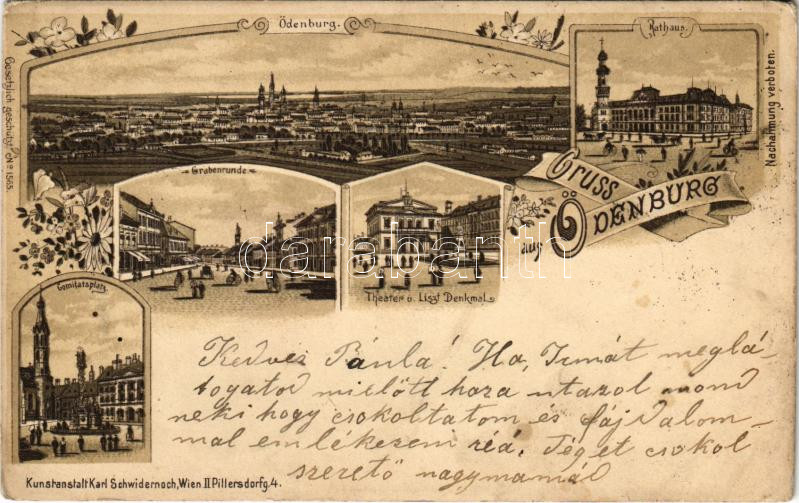 Ödenburg.
Rathaus.
Gesetzlich geschützt No 1565.
Nachahmung verboten.
Grabenrunde
Gruss
aus
ÖDENBURG
Theater u. Liszt Denkmal
Comitatsplatz
darabanth
Kedves Paula! Ha, Irmát meglá-
togatod mielőtt haza utazol mond
neki hogy csokoltatom és fájdalom-
mal emlékezem reá. Téged csokol
szerető nagymamád
Kunstanstalt Karl Schwidernoch, Wien II Pillersdorfg. 4.